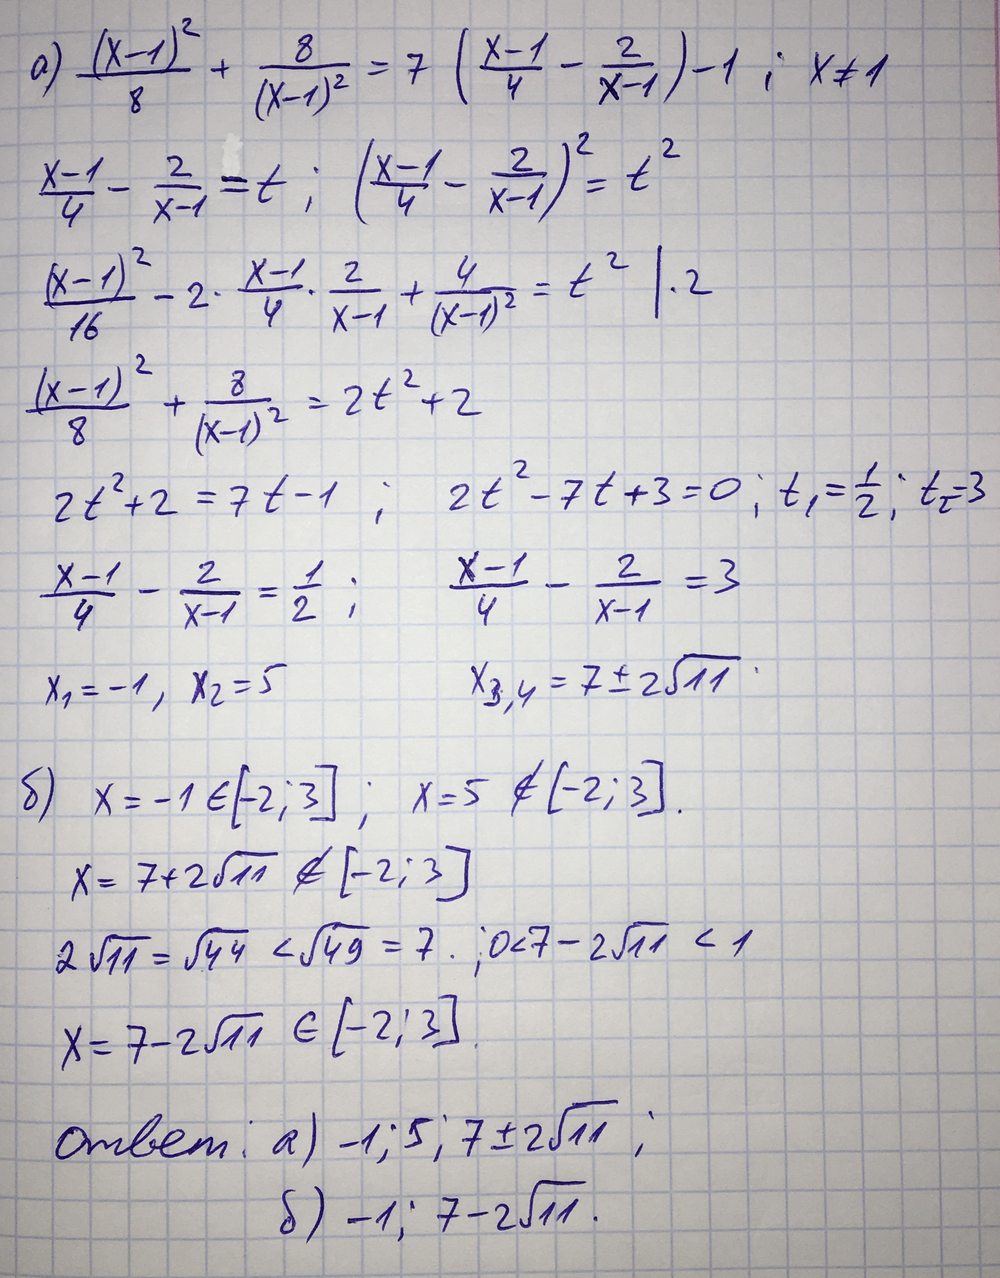 а) (x-1)²/8 + 8/(x-1)² = 7 (x-1/4 - 2/x-1) - 1 ; x≠1
x-1/4 - 2/x-1 = t ; (x-1/4 - 2/x-1)² = t²
(x-1)²/16 - 2 · x-1/4 · 2/x-1 + 4/(x-1)² = t² | · 2
(x-1)²/8 + 8/(x-1)² = 2t² + 2
2t² + 2 = 7t - 1 ; 2t² - 7t + 3 = 0 ; t₁ = 1/2 ; t₂ = 3
x-1/4 - 2/x-1 = 1/2 ; x-1/4 - 2/x-1 = 3
x₁ = -1, x₂ = 5 x₃,₄ = 7 ± 2√11
б) x = -1 ∈ [-2; 3] ; x = 5 ∉ [-2; 3].
x = 7 + 2√11 ∉ [-2; 3]
2√11 = √44 < √49 = 7. ; 0 < 7 - 2√11 < 1
x = 7 - 2√11 ∈ [-2; 3].
ответ: а) -1; 5; 7 ± 2√11 ;
б) -1; 7 - 2√11.